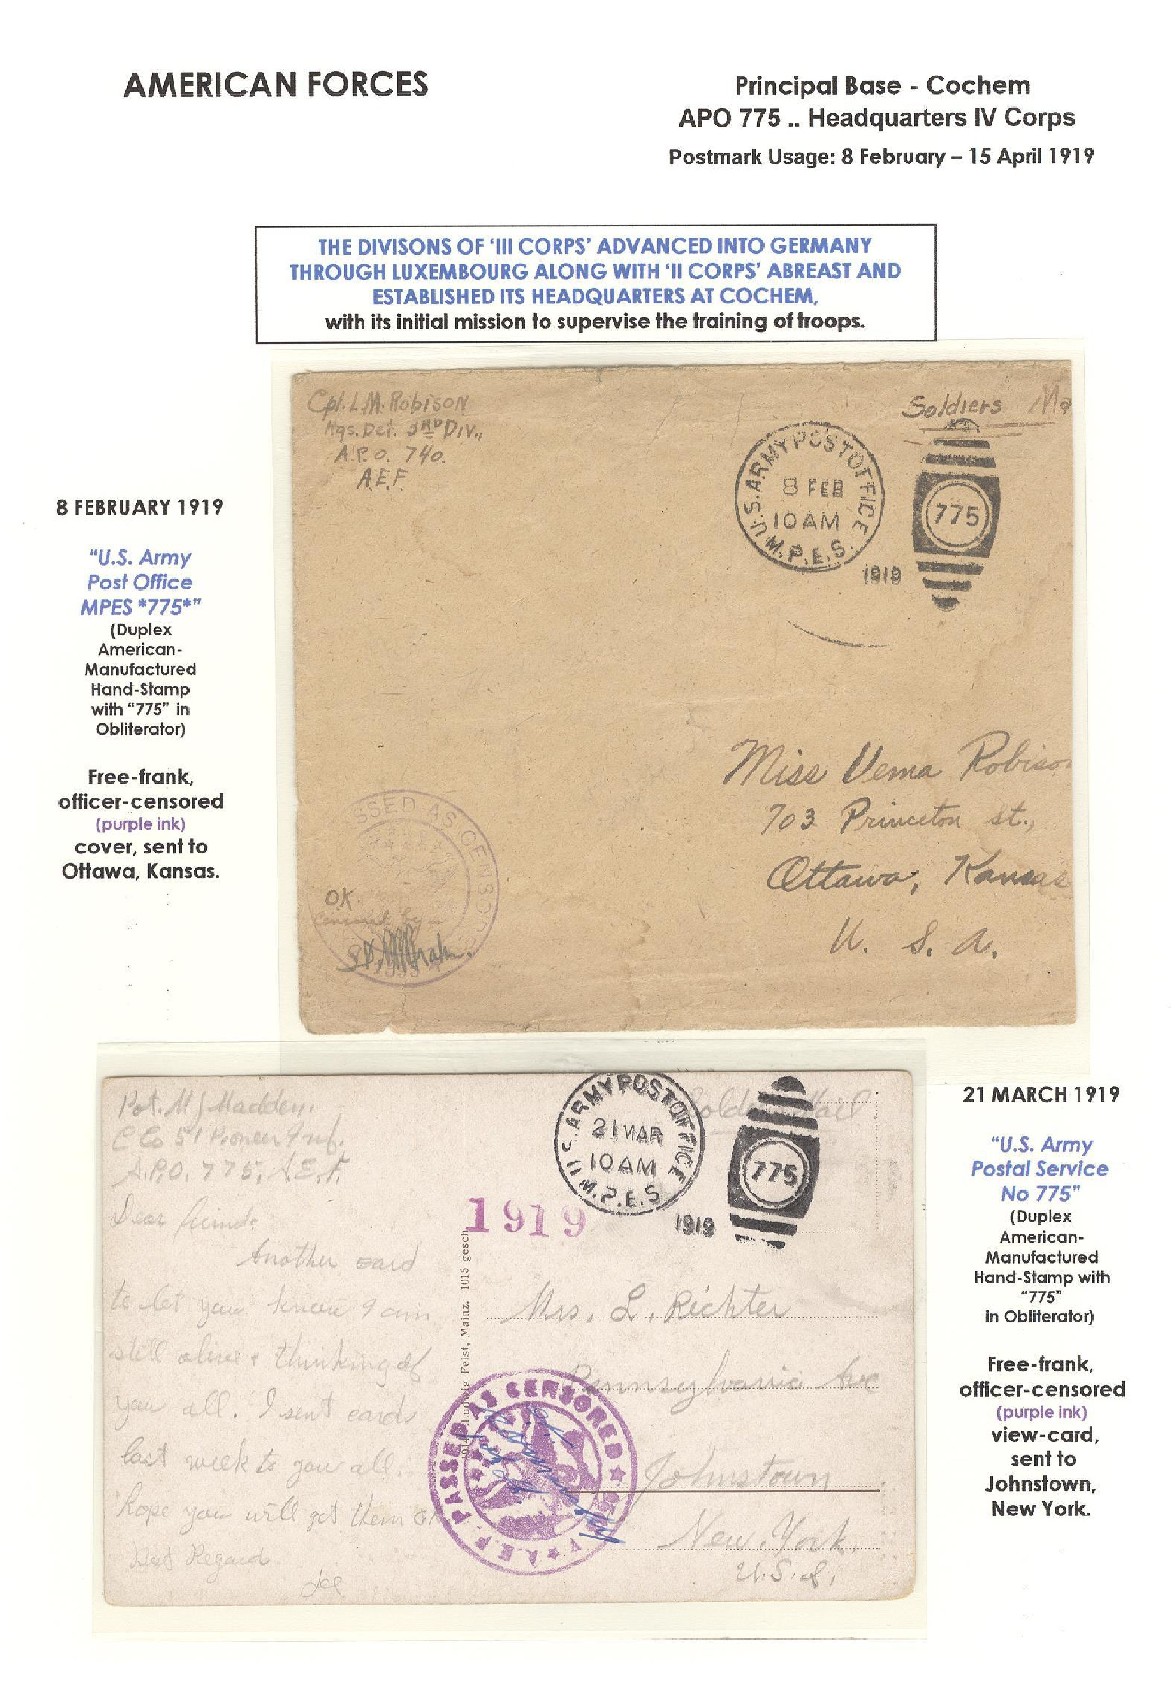 AMERICAN FORCES
Principal Base - Cochem
APO 775 .. Headquarters IV Corps
Postmark Usage: 8 February – 15 April 1919
THE DIVISONS OF ‘III CORPS’ ADVANCED INTO GERMANY
THROUGH LUXEMBOURG ALONG WITH ‘II CORPS’ ABREAST AND
ESTABLISHED ITS HEADQUARTERS AT COCHEM,
with its initial mission to supervise the training of troops.
8 FEBRUARY 1919
“U.S. Army
Post Office
MPES *775*”
(Duplex
American-
Manufactured
Hand-Stamp
with “775” in
Obliterator)
Free-frank,
officer-censored
(purple ink)
cover, sent to
Ottawa, Kansas.
Cpl. L.M. Robison
Hqs. Det. 3RD Div.,
A.P.O. 740.
A.E.F.
Soldiers Ma
U.S. ARMY POST OFFICE
8 FEB
10 AM
M.P.E.S.
1919
775
Miss Verna Robison
703 Princeton st.,
Ottawa, Kansas
U. S. A.
SSED AS CENSO
O.K.
Censored by
21 MARCH 1919
“U.S. Army
Postal Service
No 775”
(Duplex
American-
Manufactured
Hand-Stamp with
“775”
in Obliterator)
Free-frank,
officer-censored
(purple ink)
view-card,
sent to
Johnstown,
New York.
Pvt. M J Madden
C Co 51 Pioneer Inf.
A.P.O. 775, A.E.F.
Dear friends
Another card
to let you know I am
still alive & thinking of
you all. I sent cards
last week to you all.
hope you will get them OK
Best Regard
Joe
Soldiers Mail
U.S. ARMY POST OFFICE
21 MAR
10 AM
M.P.E.S
1919
775
1919
Ludwig Feist, Mainz. 1015 gesch.
Mrs. L. Richter
Pennsylvania Ave
Johnstown
New York.
U.S.A.
A.E.F. PASSED AS CENSORED